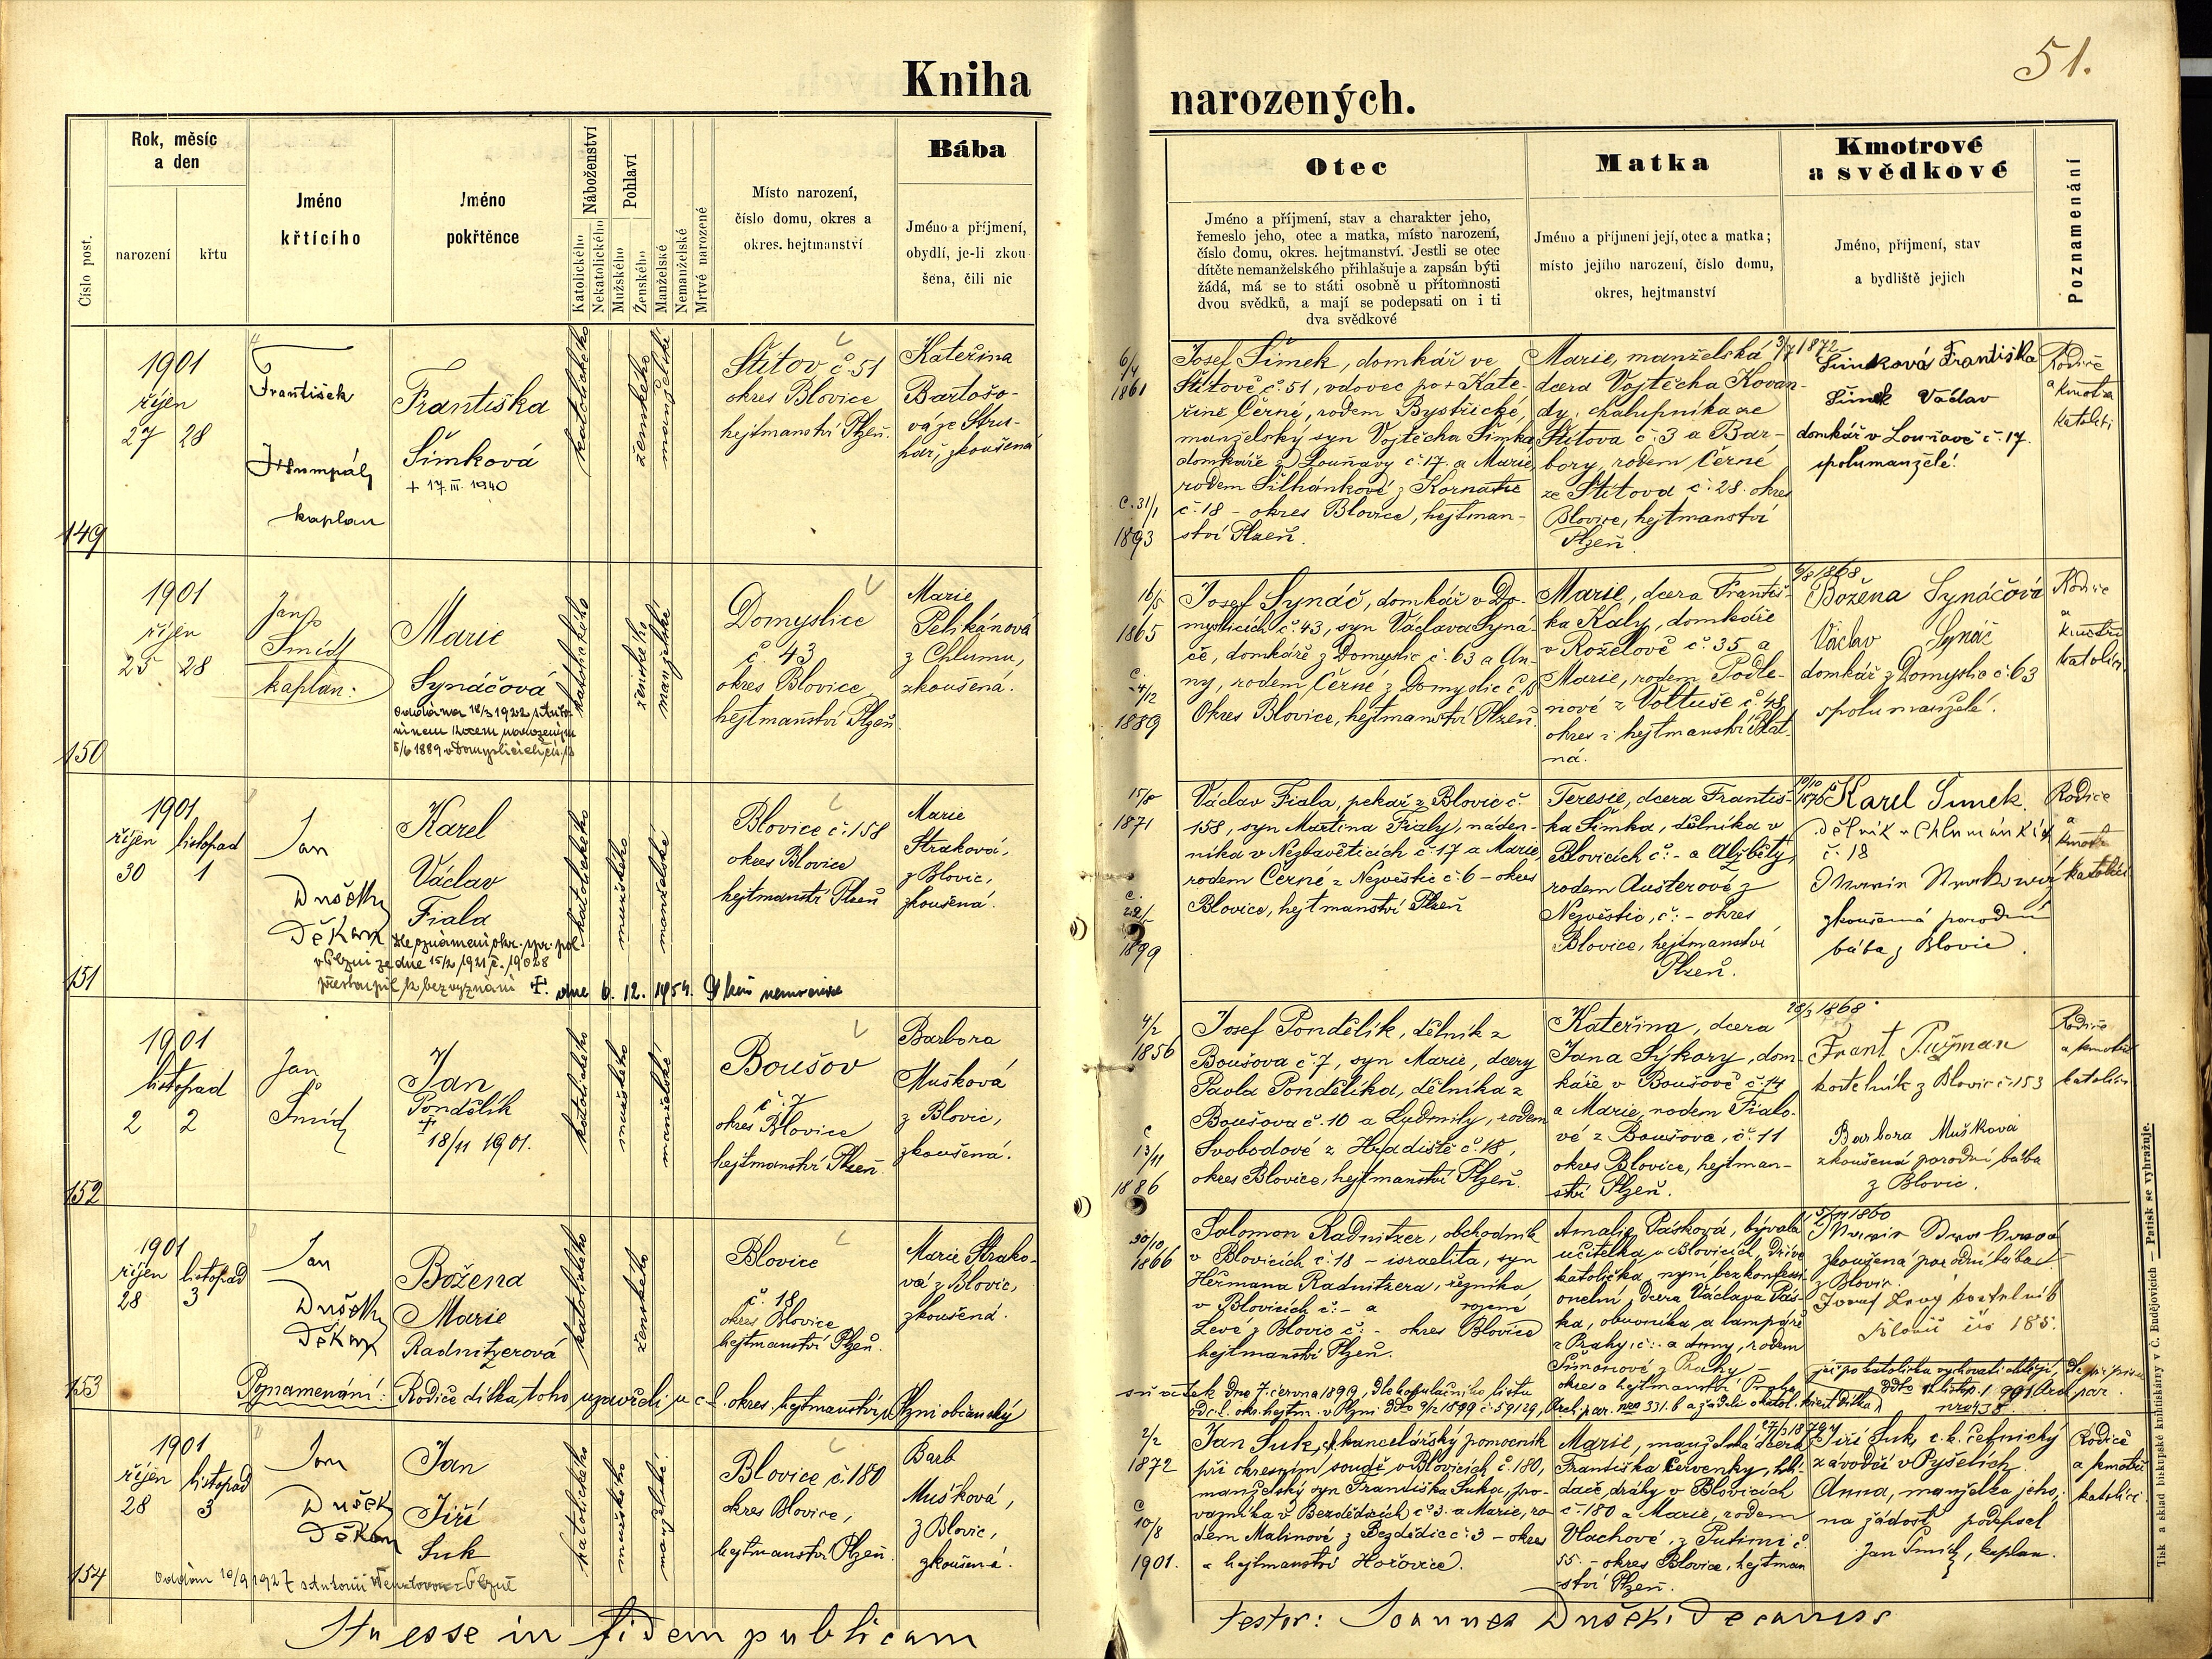 51.
Kniha
narozených.
Číslo post.
Rok, měsíc
a den
narození
křtu
Jméno
křtícího
Jméno
pokřtěnce
Náboženství
Katolického
Nekatolického
Pohlaví
Mužského
Ženského
Manželské
Nemanželské
Mrtvě narozené
Místo narození,
číslo domu, okres a
okres. hejtmanství
Bába
Jméno a příjmení,
obydlí, je-li zkou-
šena, čili nic
Otec
Jméno a příjmení, stav a charakter jeho,
řemeslo jeho, otec a matka, místo narození,
číslo domu, okres. hejtmanství. Jestli se otec
dítěte nemanželského přihlašuje a zapsán býti
žádá, má se to státi osobně u přítomnosti
dvou svědků, a mají se podepsati on i ti
dva svědkové
Matka
Jméno a příjmení její, otec a matka;
místo jejího narození, číslo domu,
okres, hejtmanství
Kmotrové
a svědkové
Jméno, příjmení, stav
a bydliště jejich
Poznamenání
149
1901
říjen
27 28
František
kaplan
Františka
Šimková
+ 17. III. 1940
katolického
ženského
manželské
Štítov č. 51
okres Blovice
hejtmanství Plzeň.
Kateřina
Bartošo-
vá ze Stru-
hař, zkoušená
6/4
1861
C. 31/1
1893
Josef Šimek, domkář ve
Štítově č. 51, vdovec po + Kate-
řině Černé, rodem Bystřické,
manželský syn Vojtěcha Šimka
domkáře z Louňavy č. 17. a Marie,
rodem Šilhánkové z Kornatic
č. 18 - okres Blovice, hejtman-
ství Plzeň.
Marie, manželská 3/7 1872
dcera Vojtěcha Kovan-
dy, chalupníka ze
Štítova č. 3 a Bar-
bory, rodem Černé
ze Štítova č. 28. okres
Blovice, hejtmanství
Plzeň
Šimková Františka
Šimek Václav
domkář v Louňavě č. 17.
spolumanželé.
Rodiče
a kmotři
katolíci
150
1901
říjen
25 28
Jan
Šmíd
kaplan.
Marie
Synáčová
oddána 18/3 1922 s Anto-
nínem Kocem narozeným
5/6 1889 v Domyslicích
katolického
ženského
manželské
Domyslice
č. 43
okres Blovice
hejtmanství Plzeň
Marie
Pelikánová
z Chlumu,
zkoušená.
16/5
1865
C. 4/2
1889
Josef Synáč, domkář v Do-
myslicích č. 43, syn Václava Syná-
če, domkáře z Domyslic č. 63 a An-
ny, rodem Černé z Domyslic č.
Okres Blovice, hejtmanství Plzeň
Marie, dcera Františ-
ka Kaly, domkáře
v Roželově č. 35 a
Marie, rodem Podle-
nové z Voltuše č. 48
okres i hejtmanství Blat-
ná.
5/8 1868
Božena Synáčová
Václav Synáč
domkář z Domyslic č. 63
spolumanželé.
Rodiče
a
kmotři
katolíci.
151
1901
říjen listopad
30 1
Jan
Dušek
Děkan
Karel
Václav
Fiala
Dle oznámení okr. spr. pol.
v Plzni ze dne 15/2 1921 č. 19028
přestoupil k bezvyznání +. dne 6. 12. 1954.
katolického
mužského
manželské
Blovice č. 158
okres Blovice
hejtmanství Plzeň
Marie
Straková,
z Blovic,
zkoušená.
15/8
1871
C.
22/5
1899
Václav Fiala, pekař z Blovic č.
158, syn Martina Fialy, náden-
níka v Nezbavěticích č. 17 a Marie
rodem Černé z Nezvěstic č. 6 - okres
Blovice, hejtmanství Plzeň
Teresie, dcera Františ-
ka Šimka, dělníka v
Blovicích č. - a Alžběty,
rodem Aušterové z
Nezvěstic, č. - okres
Blovice, hejtmanství
Plzeň.
10/10 1876
Karel Šimek
dělník v Chlumánkách
č. 18
Marie Straková
zkoušená porodní
bába z Blovic.
Rodiče
a
kmotři
katolíci
152
1901
listopad
2 2
Jan
Šmíd
Jan
Pondělík
+
18/11 1901.
katolického
mužského
manželské
Boušov
č. 7
okres Blovice
hejtmanství Plzeň.
Barbora
Mušková
z Blovic,
zkoušená.
4/2
1856
C
13/11
1886
Josef Pondělík, dělník z
Boušova č. 7, syn Marie, dcery
Pavla Pondělíka, dělníka z
Boušova č. 10 a Lydmily, rodem
Svobodové z Hradiště č. 18,
okres Blovice, hejtmanství Plzeň.
Kateřina, dcera
Jana Sýkory, dom-
káře v Boušově č. 14
a Marie, rodem Fialo-
vé z Boušova, č. 11
okres Blovice, hejtman-
ství Plzeň.
28/3 1868
Frant. Pužman
kostelník z Blovic č. 153
Barbora Mušková
zkoušená porodní bába
z Blovic.
Rodiče
a kmotři
katolíci
153
1901
říjen listopad
28 3
Jan
Dušek
Děkan
Božena
Marie
Radnitzerová
katolického
ženského
Blovice
č. 18
okres Blovice
hejtmanství Plzeň.
Marie Strako-
vá z Blovic,
zkoušená.
30/10
1866
Salomon Radnitzer, obchodník
v Blovicích č. 18 - israelita, syn
Heřmana Radnitzera, řezníka
v Blovicích č. - a rozené
Levé z Blovic č. - okres Blovice
hejtmanství Plzeň.
Amalie Pásková, bývalá
učitelka v Blovicích, dříve
katolička, nyní bez konfessi-
onelní, dcera Václava Pás-
ka, obuvníka a lampáře
z Prahy, č. - a Anny, rodem
Šimonové z Prahy -
okres a hejtmanství Praha
5/11 1860
Marie Straková
zkoušená porodní bába
z Blovic.
Josef Levý kostelník
Blovic čís 185.
Poznamenání: Rodiče dítka toho uzavřeli u c. k. okres. hejtmanství v Plzni občanský
sňatek dne 7. června 1899, dle kopulačního listu
od c. k. okr. hejtm. v Plzni ddto 9/12 1899 č. 59129,
154
1901
říjen listopad
28 3
Jan
Dušek
Děkan
Jan
Jiří
Suk
oddán 10/9 1927
katolického
mužského
manželské.
Blovice č. 180
okres Blovice,
hejtmanství Plzeň.
Barb
Mušková,
z Blovic,
zkoušená.
2/2
1872
C
10/8
1901.
Jan Suk, kancelářský pomocník
při okresním soudě v Blovicích č. 180,
manželský syn Františka Suka, pro-
vazníka v Bezdědicích č. 3. a Marie, ro-
dem Malinové z Bezdědic č. 3 - okres
a hejtmanství Hořovice.
Marie, manželská dcera
Františka Červenky, hlí-
dače dráhy v Blovicích
č. 180 a Marie, rodem
Vlachové, z Putimi č.
55. - okres Blovice, hejtman
ství Plzeň.
Jiří Suk, c. k. četnický
závodčí v Pyšelích.
Anna, manželka jeho,
na žádost podepsal
Jan Šmíd, kaplan.
Rodiče
a kmotři
katolíci.
Ita esse in fidem publicam
testor: Joannes Dušek, Decanus
Tisk a sklad biskupské knihtiskárny v Č. Budějovicích — Patisk se vyhražuje.